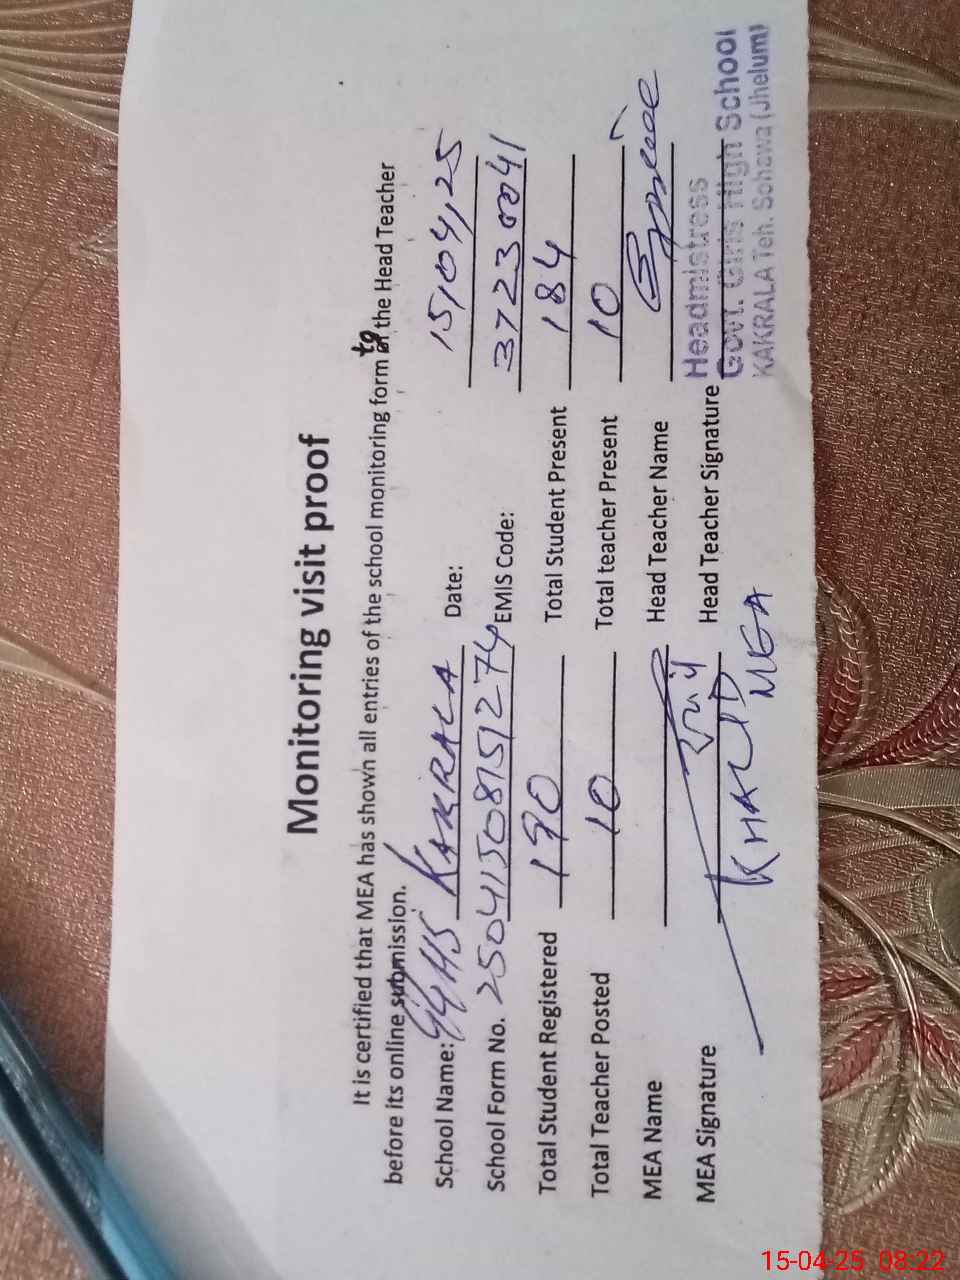 Monitoring visit proof
It is certified that MEA has shown all entries of the school monitoring form to the Head Teacher
before its online submission.
School Name: GGHS KAKRALA Date: 15/04/25
School Form No. 250415081512274 EMIS Code: 37230041
Total Student Registered 190 Total Student Present 184
Total Teacher Posted 10 Total teacher Present 10
MEA Name Head Teacher Name
MEA Signature KHALID Head Teacher Signature
MEA
Headmistress
Govt. Girls High School
KAKRALA Teh. Sohawa (Jhelum)
15-04-25 08:22